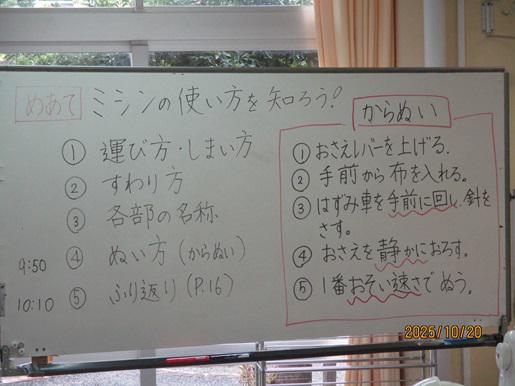 めあて ミシンの使い方を知ろう!
① 運び方・しまい方
② すわり方
③ 各部の名称
9:50 ④ ぬい方(からぬい)
10:10 ⑤ ふり返り(P.16)
からぬい
① おさえレバーを上げる.
② 手前から布を入れる。
③ はずみ車を手前に回し針を
さす。
④ おさえを静かにおろす。
⑤ 1番おそい速さでぬう。
2025/10/20